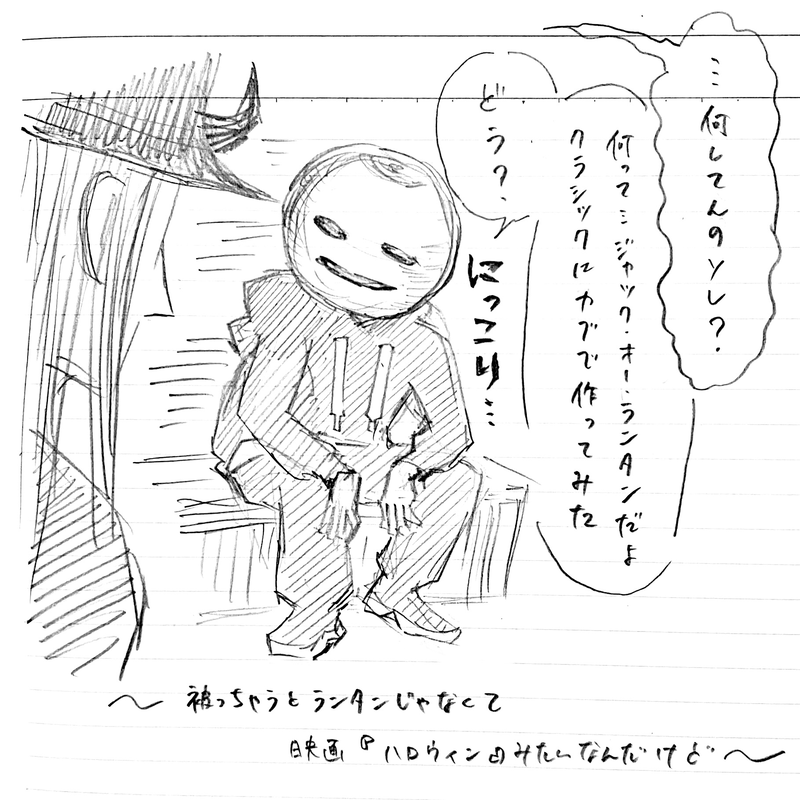 …何してんのソレ?
何って…ジャック・オー・ランタンだよ
クラシックにカブで作ってみた
どう?
にっこり…
〜被っちゃうとランタンじゃなくて
映画『ハロウィン』みたいなんだけど〜